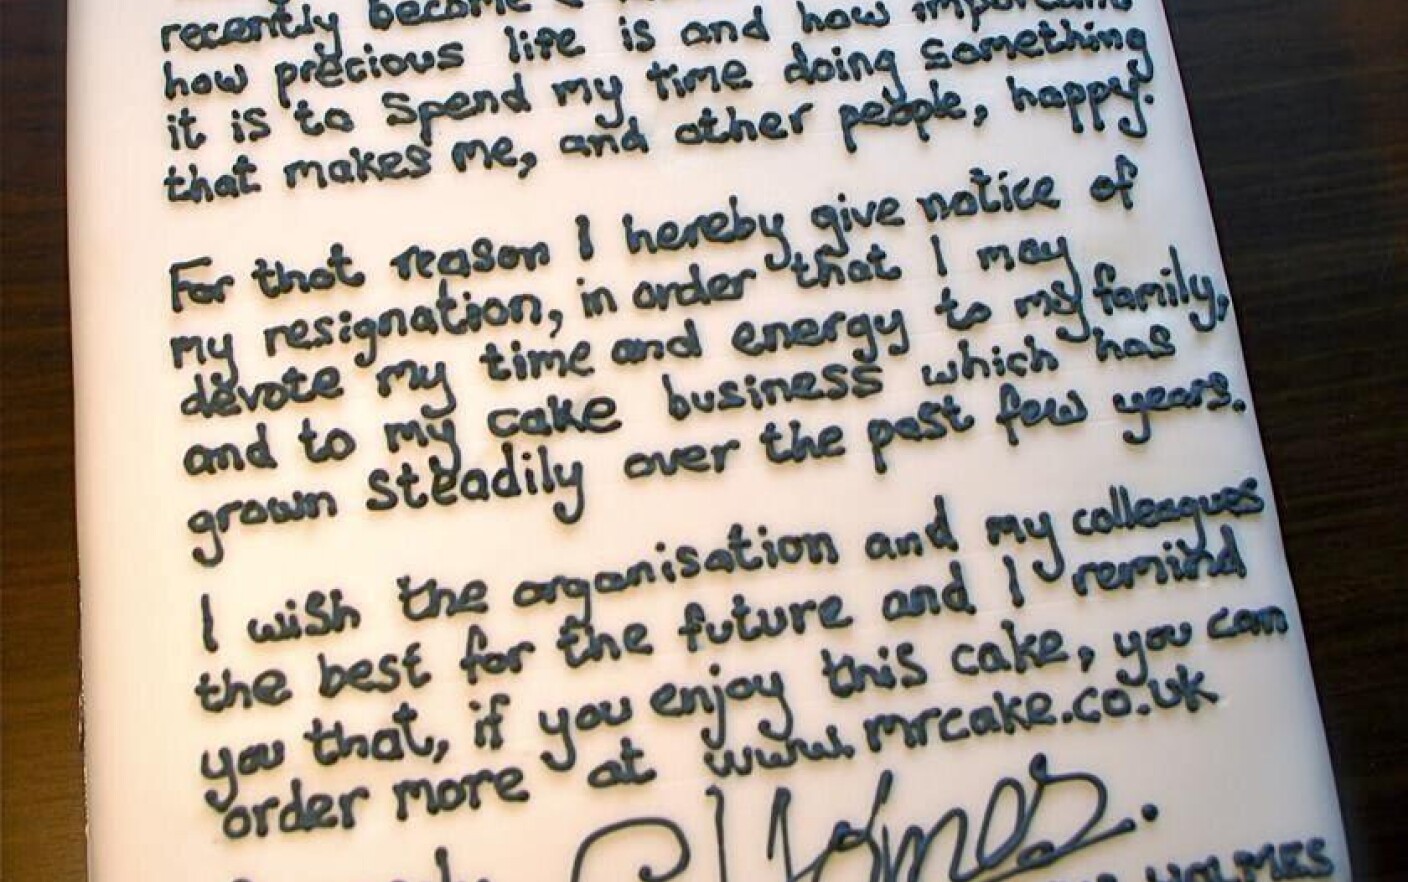 recently become
how precious life is and how important
it is to spend my time doing something
that makes me, and other people, happy.
For that reason I hereby give notice of
my resignation, in order that I may
devote my time and energy to my family,
and to my cake business which has
grown steadily over the past few years.
I wish the organisation and my colleagues
the best for the future and I remind
you that, if you enjoy this cake, you can
order more at www.mrcake.co.uk
Holmes.
HOLMES